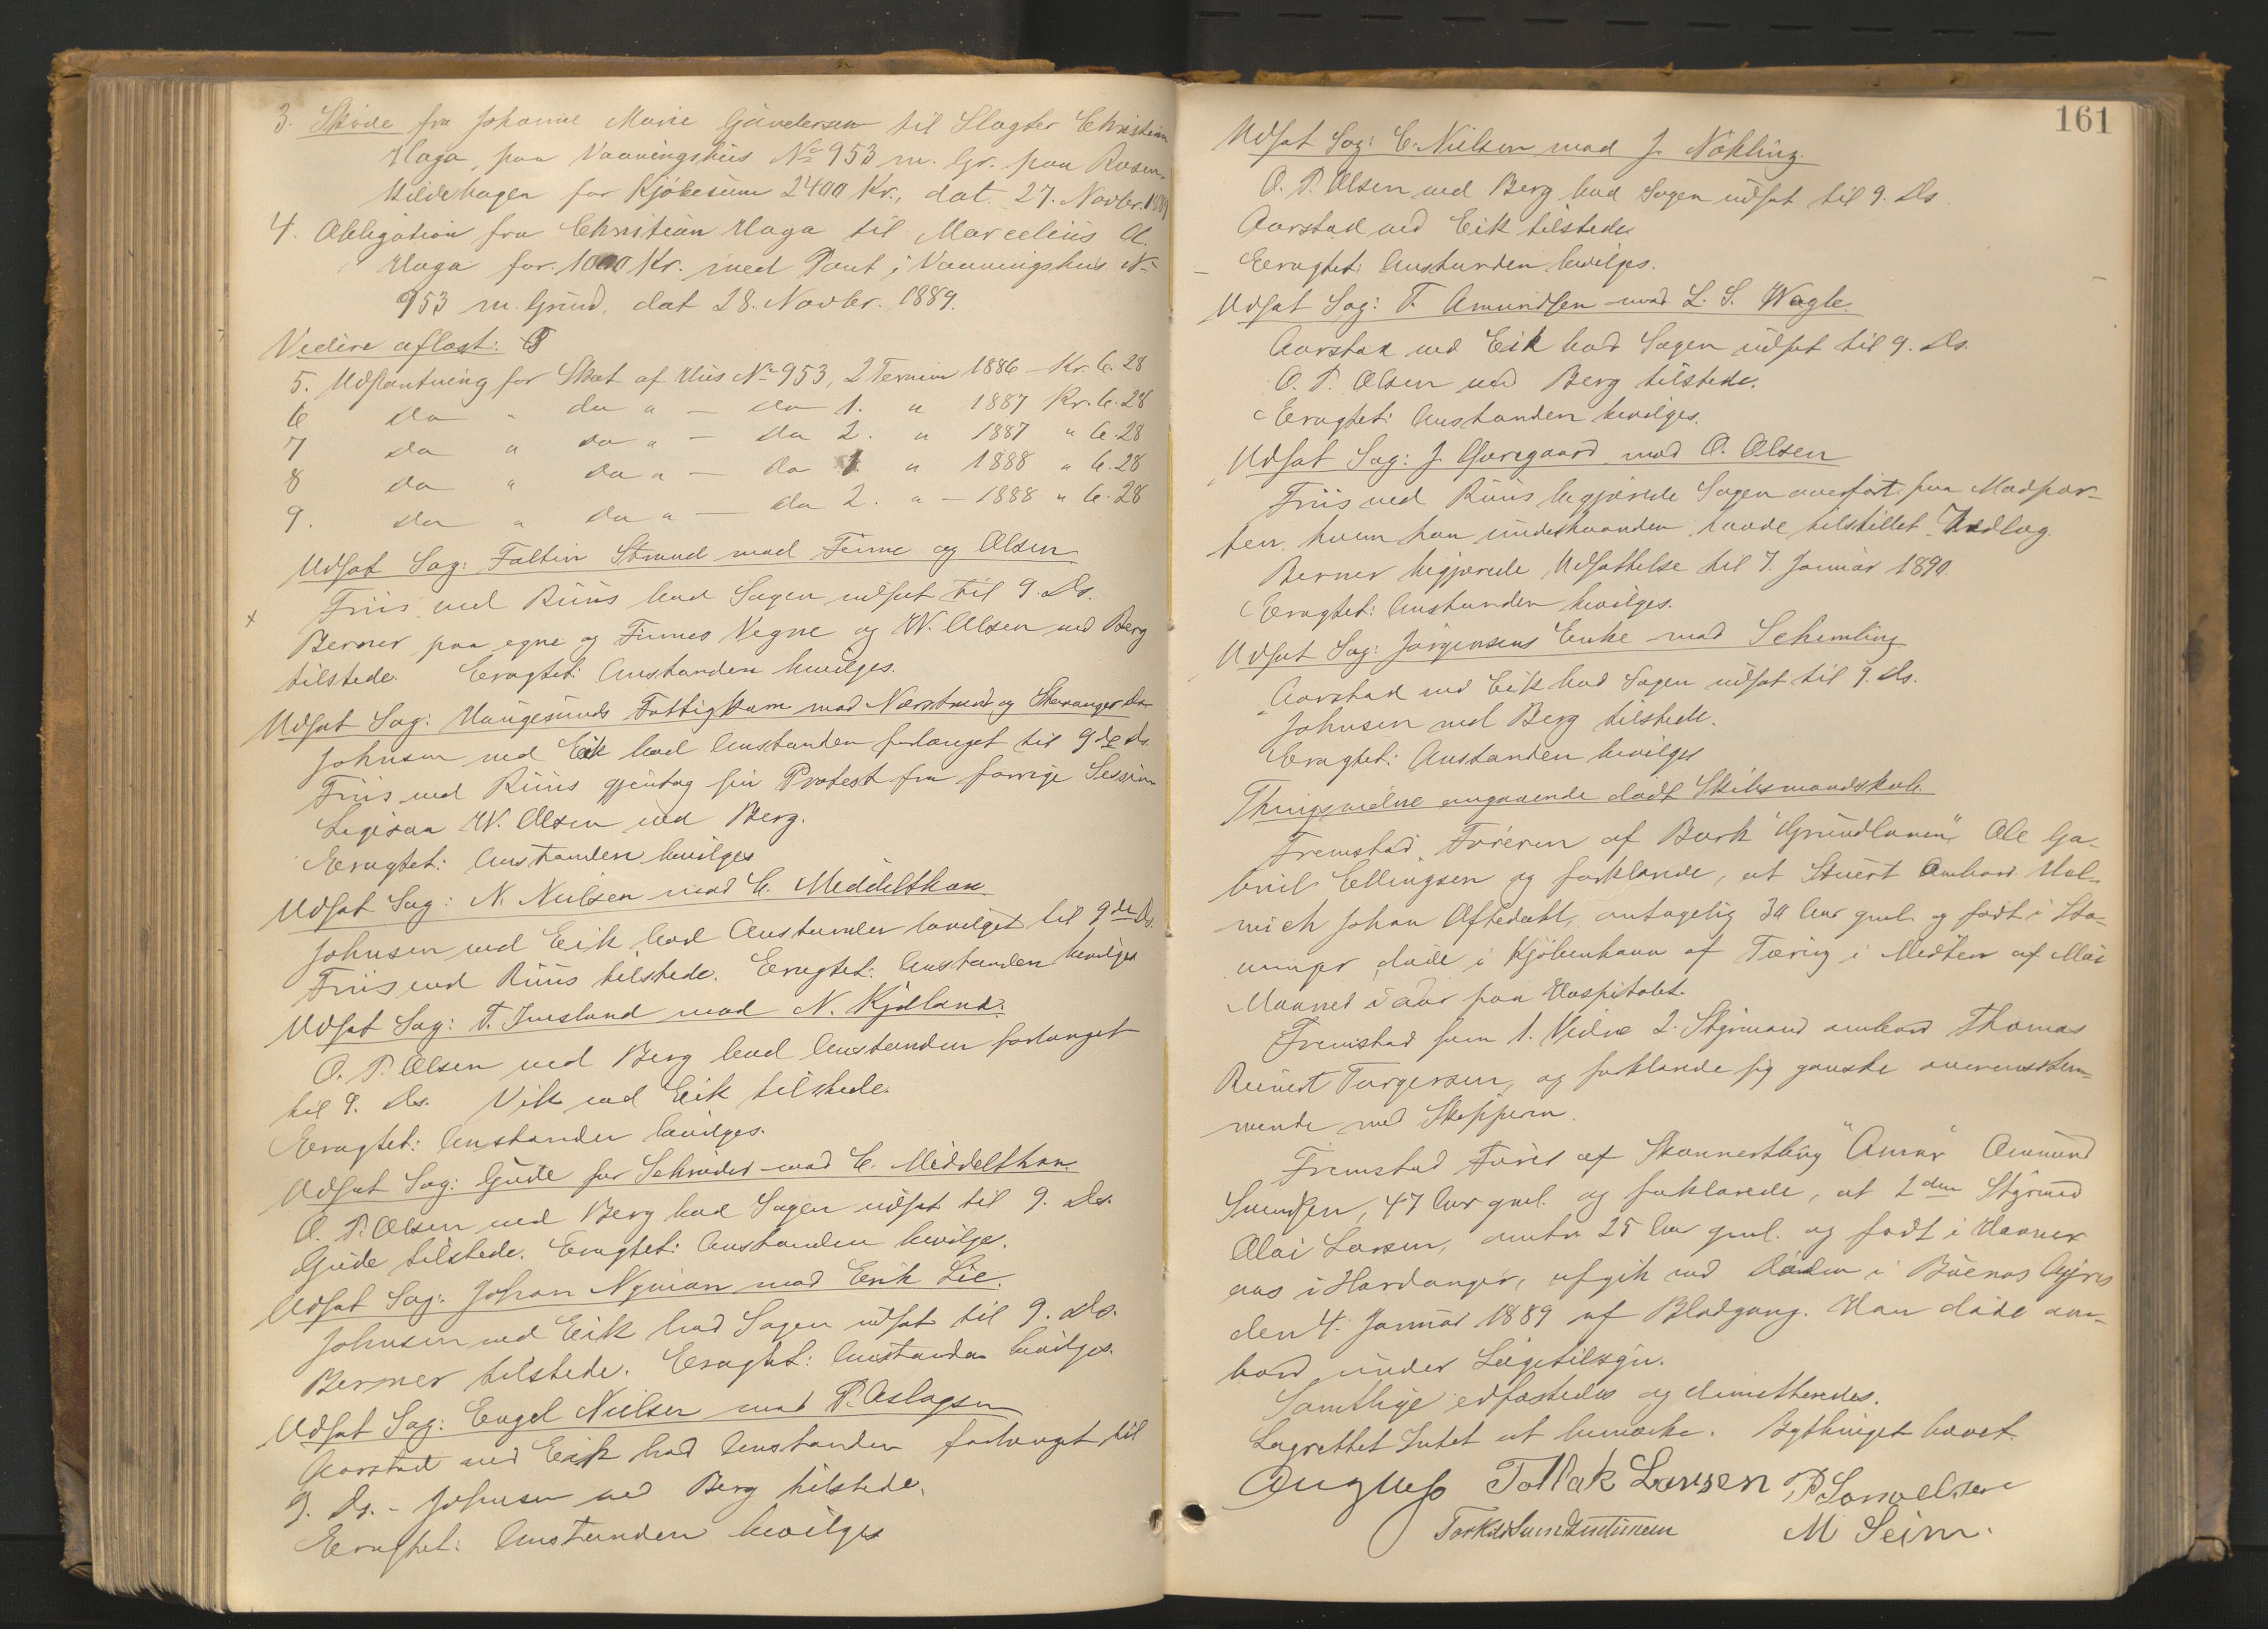 3. Skjøde fra Johanne Marie Gundersen til Slagter Christian
Haga, paa Vaaningshus No 953 m. Gr. paa Rosen-
kildehagen for Kjøbesum 2400 Kr., dat. 27. Novbr. 1889
4. Obligation fra Christian Haga til Marcelius A.
Haga for 1000 Kr. med Pant i Vaaningshus No
953 m. Grund, dat 28. Novbr. 1889.
Videre aflæst:
5. Udpantning for Skat af Hus No 953, 2 Termin 1886 - Kr. 6.28
6 do " do " - do 1. " 1887 Kr. 6.28
7 do " do " - do 2. " 1887 " 6.28
8 do " do " - do 1. " 1888 " 6.28
9. do " do " - do 2. " - 1888 " 6.28
Udsat Sag: Faltin Strand mod Finne og Olsen
Friis ved Riiis bad Sagen udsat til 9. Ds.
Berner paa egne og Finnes Vegne og W. Olsen ved Berg
tilstede. Eragtet: Anstanden bevilges.
Udsat Sag: Haugesunds Fattigkom. mod Nærstrand og Stavanger do
Johnsen ved Eik bad Anstanden forlænget til 9de ds.
Friis ved Riiis gjentog sin Protest fra forrige Session
Ligesaa W. Olsen ved Berg.
Eragtet: Anstanden bevilges
Udsat Sag: N. Nielsen mod C. Middelthon
Johnsen ved Eik bad Anstanden bevilget til 9de Ds.
Friis ved Riiis tilstede. Eragtet: Anstanden bevilges
Udsat Sag: T. Imsland mod N. Kjelland.
O. P. Olsen ved Berg bad Anstanden forlænget
til 9. Ds. Vik ved Eik tilstede.
Eragtet: Anstanden bevilges.
Udsat Sag: Gude for Schrøder mod C. Middelthon.
O. P. Olsen ved Berg bad Sagen udsat til 9. Ds.
Gude tilstede. Eragtet: Anstanden bevilges.
Udsat Sag: Johan Nyman mod Erik Lie.
Johnsen ved Eik bad Sagen udsat til 9. Ds.
Berner tilstede. Eragtet: Anstanden bevilges.
Udsat Sag: Engel Nielsen mod P. Aslagsen
Aarstad ved Eik bad Anstanden forlænget til
9. Ds. - Johnsen ved Berg tilstede.
Eragtet: Anstanden bevilges
161
Udsat Sag: C. Nielsen mod J. Nøkling.
O. P. Olsen ved Berg bad Sagen udsat til 9. Ds
Aarstad ved Eik tilstede
Eragtet: Anstanden bevilges.
Udsat Sag: T. Amundsen mod L. S. Wagle.
Aarstad ved Eik bad Sagen udsat til 9. Ds.
O. P. Olsen ved Berg tilstede.
Eragtet: Anstanden bevilges.
Udsat Sag: J. mod O. Olsen
Friis ved Riiis begjærede Sagen overført paa Modpar-
ten, hvem han underhaanden havde tilstillet Indlæg.
Berner begjærede Udsættelse til 7. Januar 1890.
Eragtet: Anstanden bevilges.
Udsat Sag: Jørgensens Enke mod Schemling
Aarstad ved Eik bad Sagen udsat til 9. Ds.
Johnsen ved Berg tilstede.
Eragtet: Anstanden bevilges
Thingsvidne angaaende dødt Skibsmandskab.
Fremstod Føreren af Bark "Grundloven" Ole Ga-
briel Ellingsen og forklarede, at Stuert ombord Hel-
mich Johan Aftedahl, antagelig 30 Aar gml. og født i Sta-
vanger døde i Kjøbenhavn af Tæring i Midten af Mai
Maaned i Aar paa Hospitalet.
Fremstod som 1. Vidne 2. Styrmand ombord Thomas
Reinert Torgersen, og forklarede sig ganske overensstem-
mende med Skipperen.
Fremstod Fører af Skonnertbrig "Anna" Amund
Svendsen, 47 Aar gml. og forklarede, at 2den Styrmd
Olai Larsen, omtr. 25 Aar gml. og født i
aas i Hardanger, afgik ved Døden i Buenos Ayres
den 4. Januar 1889 af Blodgang. Han døde om-
bord under Lægetilsyn.
Samtlige edfæstedes og dimitteredes.
Lagrettet Intet at bemærke. Bythinget hævet.
Tollak Larsen P. Samuelsen
M Seim.